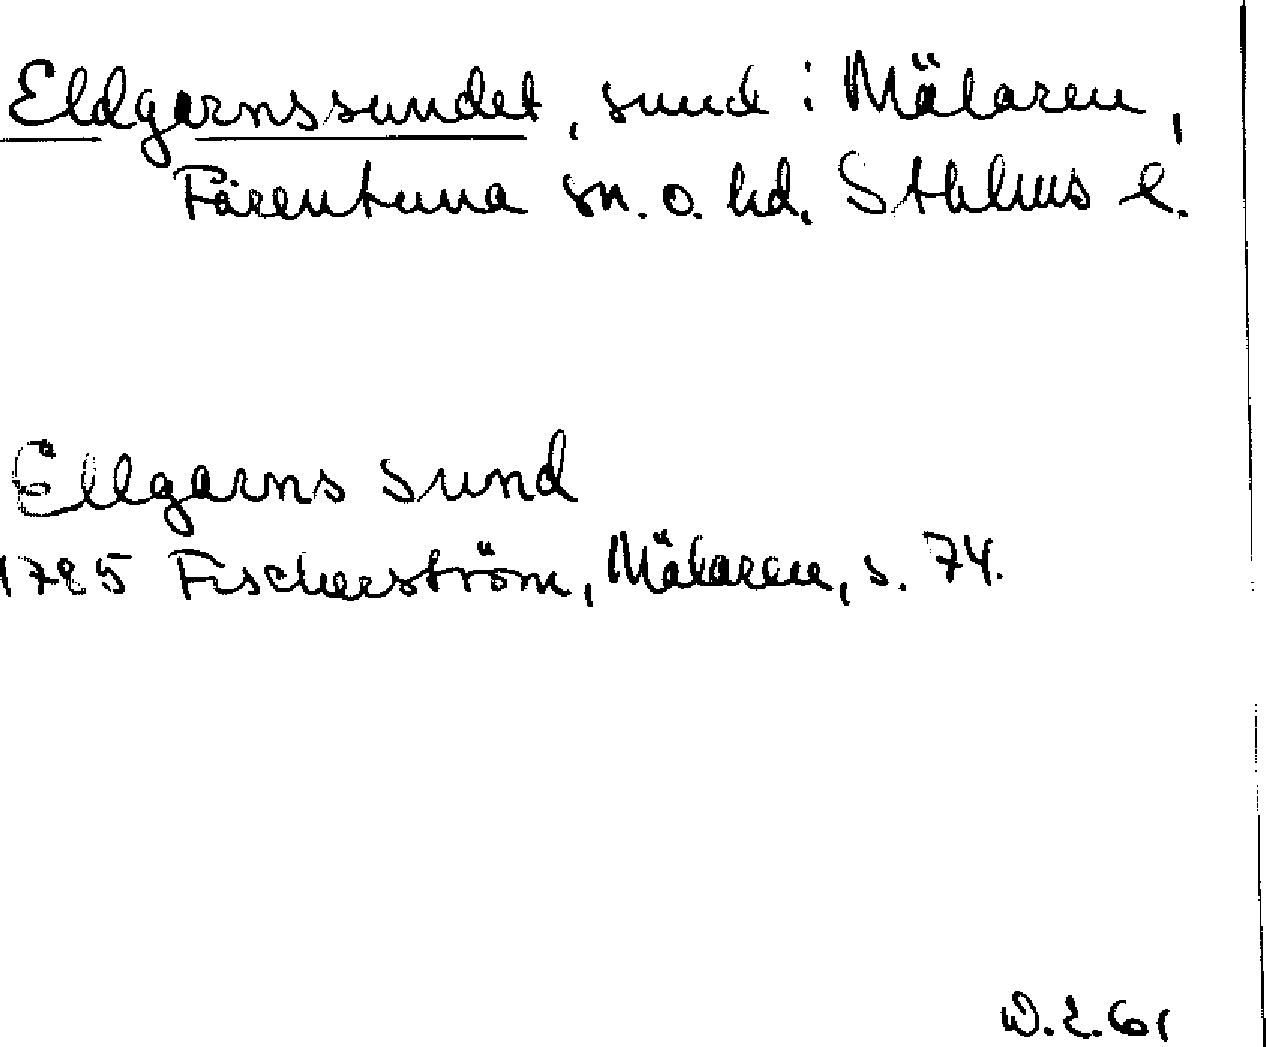 Eldgarnssundet, sund i Mälaren,
Färentuna sn. o. hd. Sthlms l.
Ellgarns sund
1785 Fischerström, Mälaren, s. 74.
W.E. 61